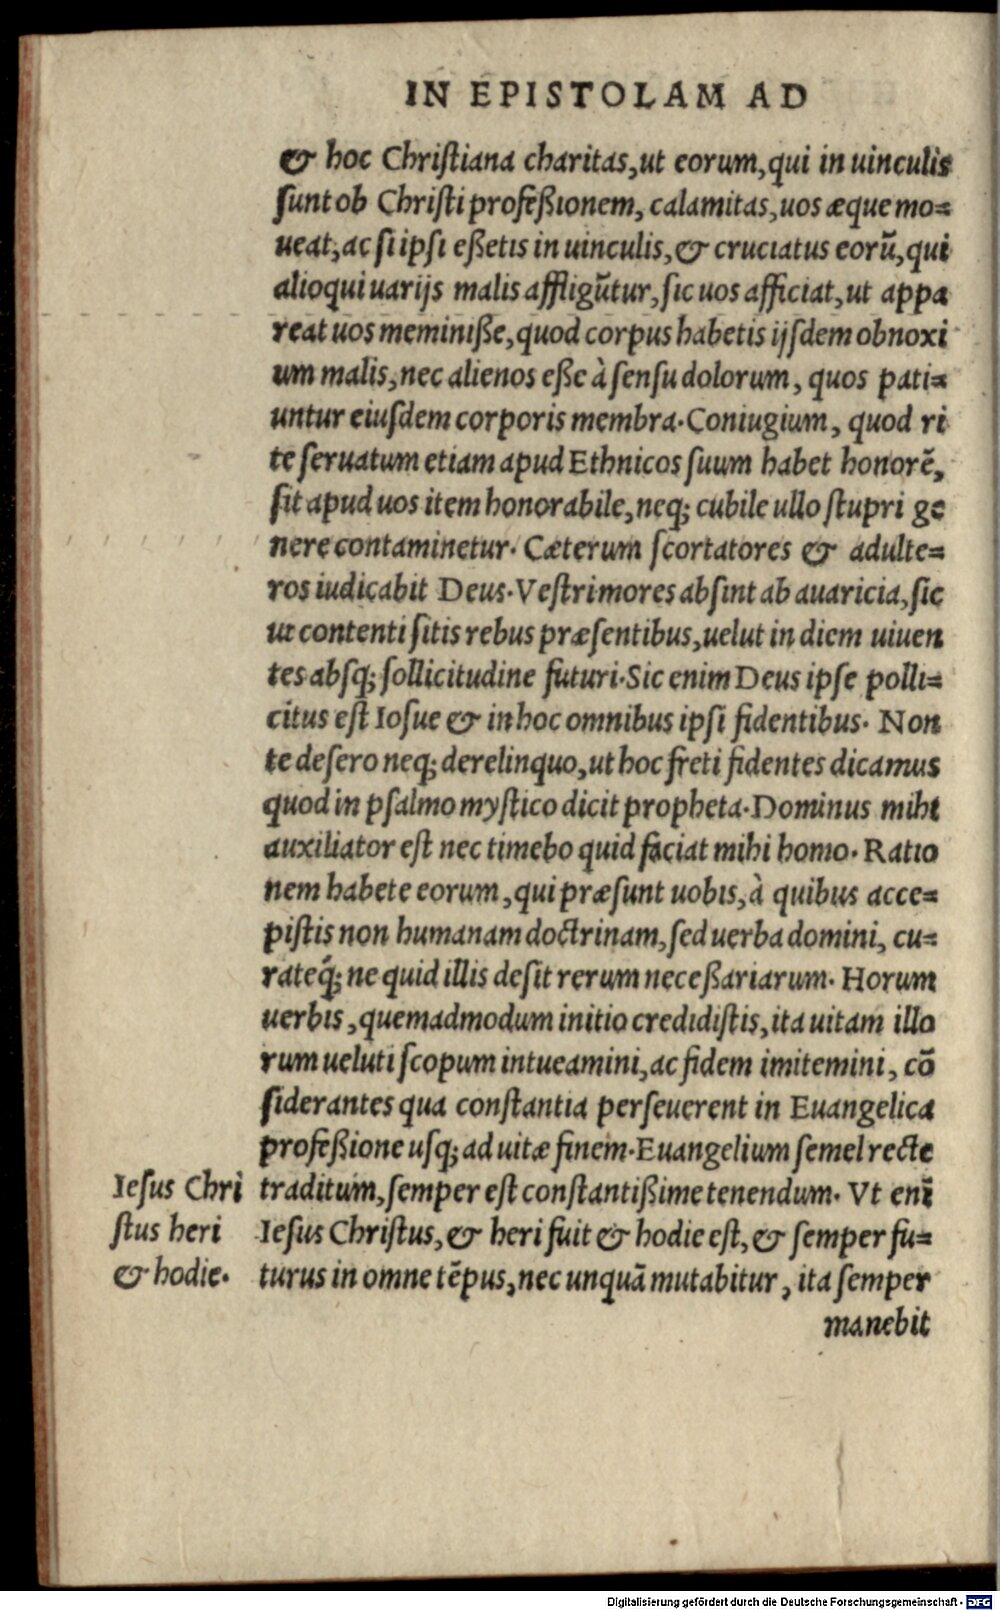 IN EPISTOLAM AD
& hoc Chriſtiana charitas, ut eorum, qui in uinculis
ſunt ob Chriſti profeßionem, calamitas, uos æque mo=
ueat, ac ſi ipſi eßetis in uinculis, & cruciatus eorũ, qui
alioqui uarijs malis affligũtur, ſic uos afficiat, ut appa
reat uos meminiße, quod corpus habetis ijſdem obnoxi
um malis, nec alienos eße à ſenſu dolorum, quos pati=
untur eiuſdem corporis membra. Coniugium, quod ri
te ſeruatum etiam apud Ethnicos ſuum habet honorẽ,
ſit apud uos item honorabile, neq; cubile ullo ſtupri ge
nere contaminetur. Cæterum ſcortatores & adulte=
ros iudicabit Deus. Veſtri mores abſint ab auaricia, ſic
ut contenti ſitis rebus præſentibus, uelut in diem uiuen
tes abſq; ſollicitudine futuri. Sic enim Deus ipſe polli=
citus eſt Ioſue & in hoc omnibus ipſi fidentibus. Non
te deſero neq; derelinquo, ut hoc freti fidentes dicamus
quod in pſalmo myſtico dicit propheta. Dominus mihi
auxiliator eſt nec timebo quid faciat mihi homo. Ratio
nem habete eorum, qui præſunt uobis, à quibus acce=
piſtis non humanam doctrinam, ſed uerba domini, cu=
rateq́; ne quid illis deſit rerum neceßariarum. Horum
uerbis, quemadmodum initio credidiſtis, ita uitam illo
rum ueluti ſcopum intueamini, ac fidem imitemini, cõ
ſiderantes qua conſtantia perſeuerent in Euangelica
profeßione uſq; ad uitæ finem. Euangelium ſemel recte
traditum, ſemper eſt conſtantißime tenendum. Vt enĩ
Ieſus Chriſtus, & heri fuit & hodie eſt, & ſemper fu=
turus in omne tẽpus, nec unquã mutabitur, ita ſemper
manebit
Ieſus Chri
ſtus heri
& hodie.
Digitalisierung gefördert durch die Deutsche Forschungsgemeinschaft - DFG